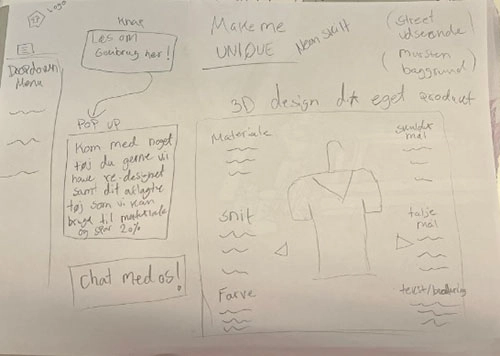 Logo
Dropdown
Menu
Knap
Læs om
Genbrug her!
POP UP
Kom med noget
tøj du gerne vil
have re-designed
samt dit aflagte
tøj som vi kan
bruge til materiale
og spar 20%
Chat med os!
Make me
UNIQUE
Neon skilt
(street
udseende)
(mursten
baggrund)
3D design dit eget product
Materiale
snit
Farve
mål
talje
mål
tekst/